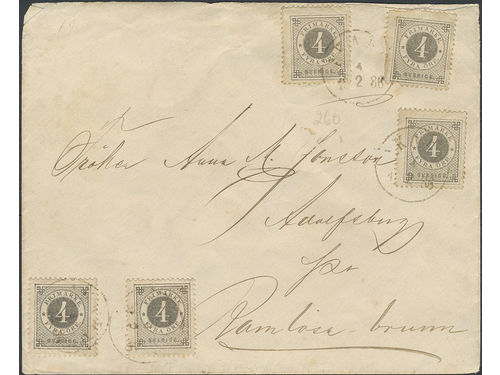 FRIMÄRKE
4
FYRA ÖRE
SVERIGE.
FRIMÄRKE
4
FYRA ÖRE
SVERIGE.
2 88
260
FRIMÄRKE
4
FYRA ÖRE
SVERIGE.
Fröken Anna M. Jonsson
Adolfsberg
pr
Ramlösa-brunn
FRIMÄRKE
4
FYRA ÖRE
SVERIGE.
FRIMÄRKE
4
FYRA ÖRE
SVERIGE.